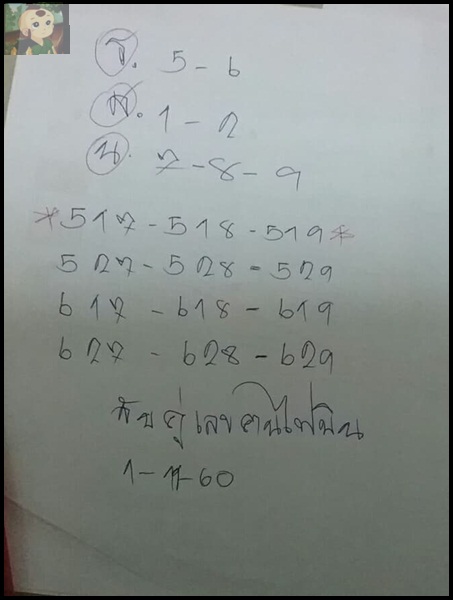 ร. 5 - 6
1 - 2
น. 7 - 8 - 9
*517 - 518 - 519*
527 - 528 - 529
617 - 618 - 619
627 - 628 - 629
จับคู่เลขคนไฟบิน
1-11-60